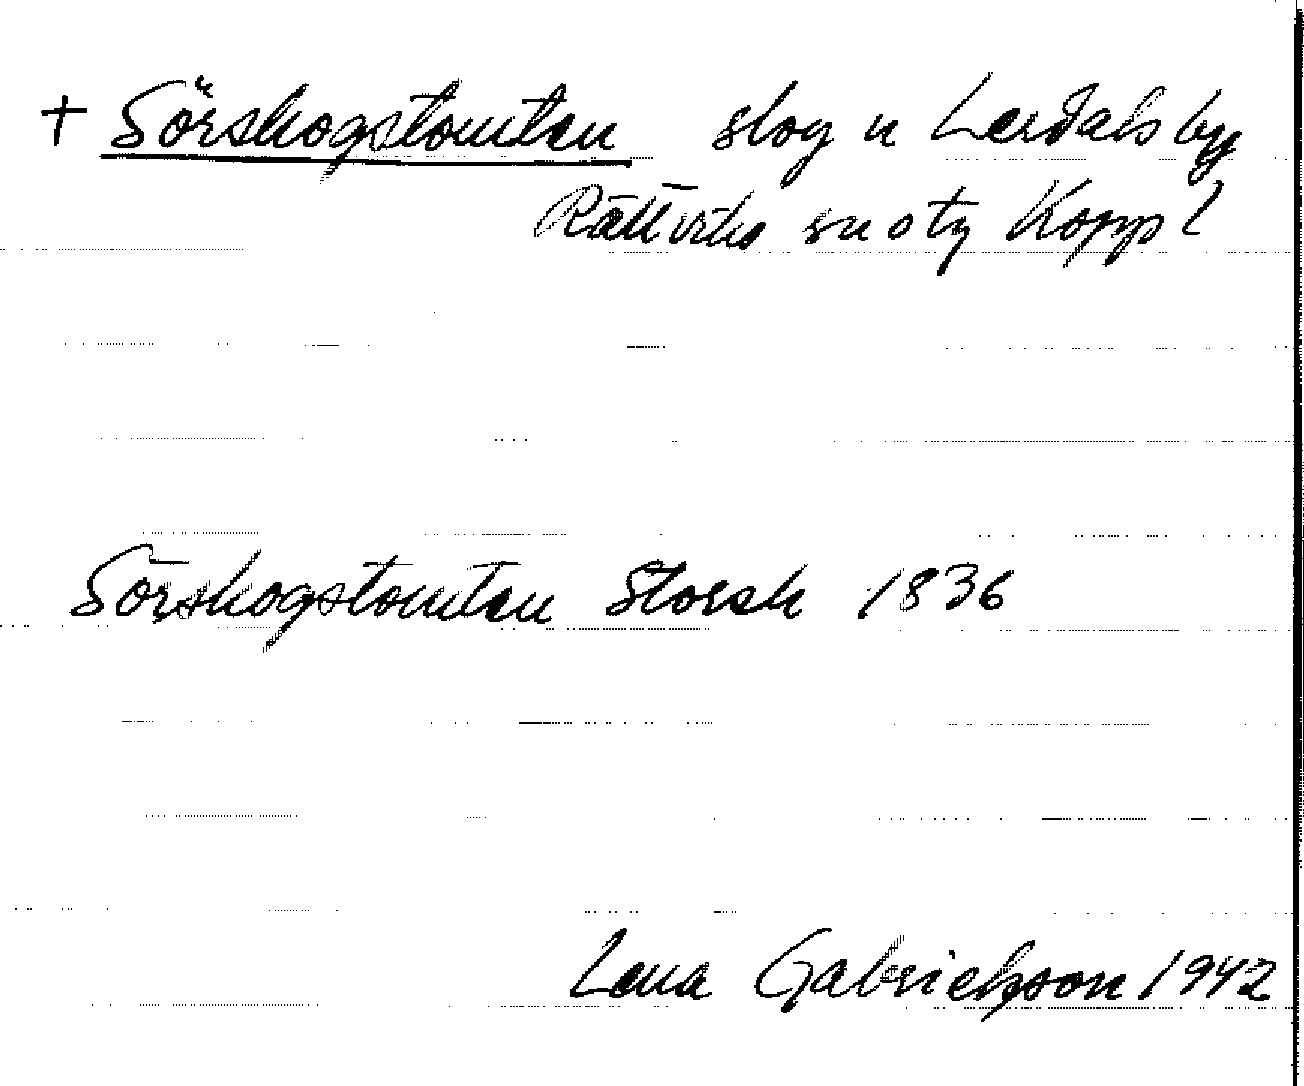 + Sörskogstomten skog u Lerdals by
Rättviks sn o tg Kopp l
Sörskogstomten Storsk 1836
Lena Gabrielsson 1942